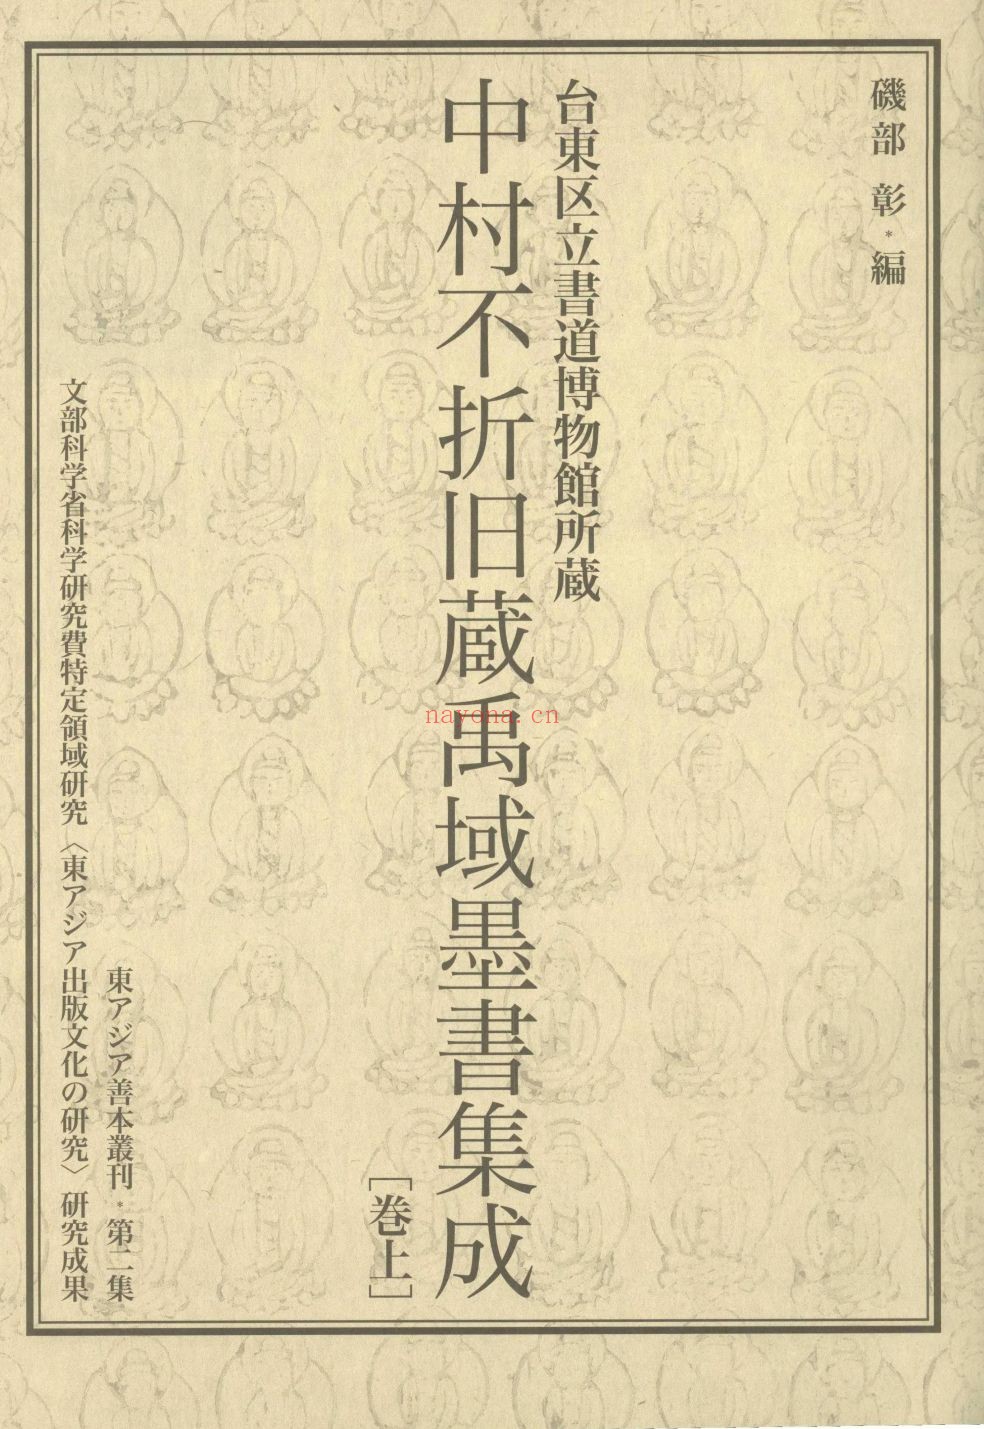 磯部 彰*編
台東区立書道博物館所蔵
中村不折旧蔵禹域墨書集成
［巻上］
東アジア善本叢刊*第二集
文部科学省科学研究費特定領域研究〈東アジア出版文化の研究〉研究成果
nayona.cn